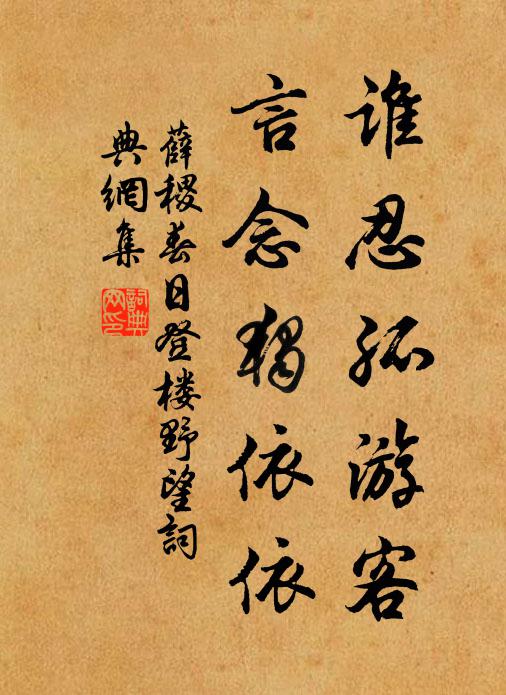 誰忍孤游客
言念獨依依
薛稷春日登楼野望詞
典網集
詞典
网印